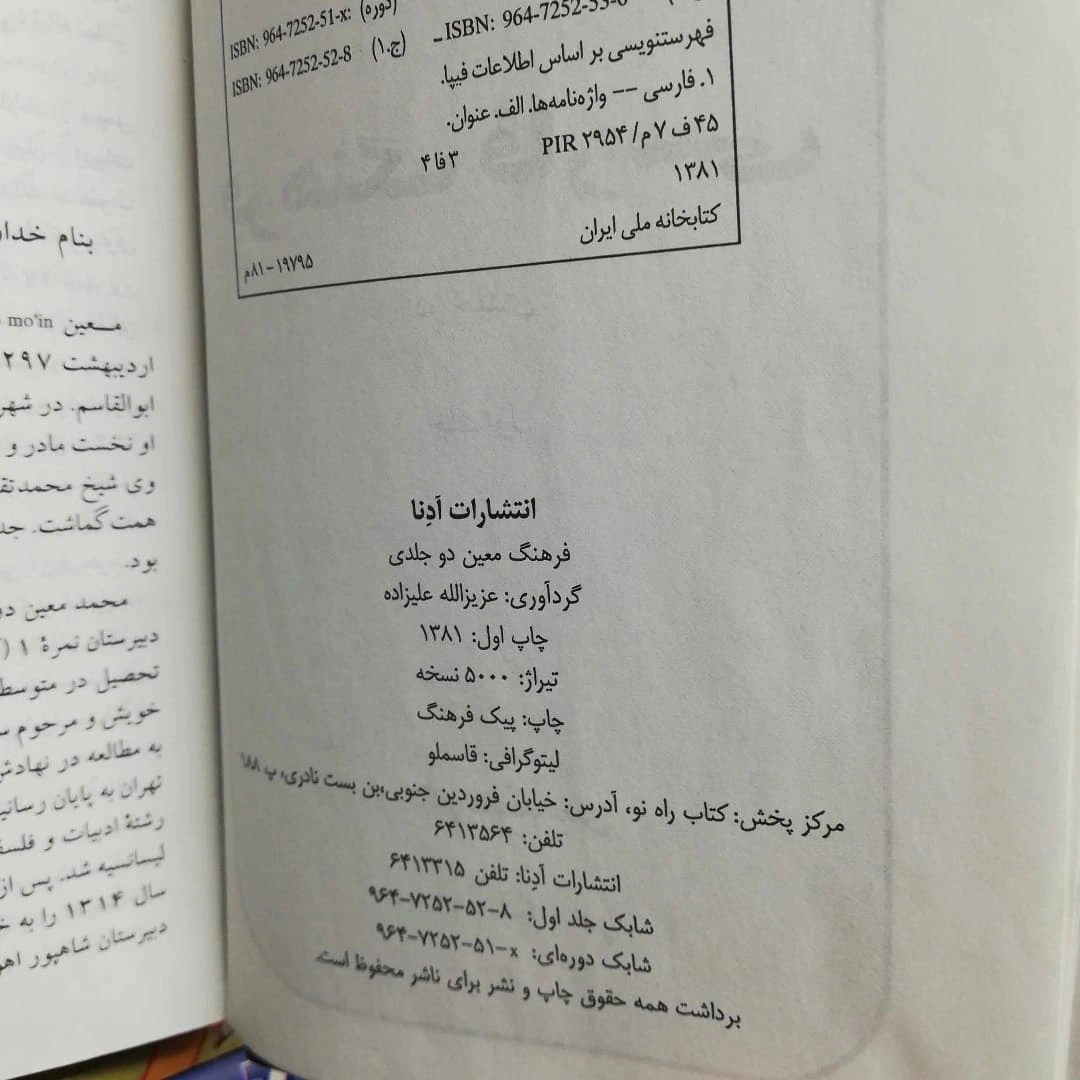 ISBN: 964-7252-51-x: (دوره)
ISBN: 964-7252-53-6 ـ
ISBN: 964-7252-52-8 (ج.۱)
فهرستنویسی بر اساس اطلاعات فیپا.
۱. فارسی -- واژه‌نامه‌ها. الف. عنوان.
۴۵ ف ۷ م/ PIR ۲۹۵۴ ۴ فا ۳
۱۳۸۱
کتابخانه ملی ایران
م۸۱-۱۹۷۹۵
انتشارات آدِنا
فرهنگ معین دو جلدی
گردآوری: عزیزالله علیزاده
چاپ اول: ۱۳۸۱
تیراژ: ۵۰۰۰ نسخه
چاپ: پیک فرهنگ
لیتوگرافی: قاسملو
مرکز پخش: کتاب راه نو، آدرس: خیابان فروردین جنوبی،بن بست نادری، پ ۱۸۸
تلفن: ۶۴۱۳۵۶۴
انتشارات آدِنا: تلفن ۶۴۱۳۳۱۵
شابک جلد اول: ۸-۵۲-۷۲۵۲-۹۶۴
شابک دوره‌ای: x-۵۱-۷۲۵۲-۹۶۴
برداشت همه حقوق چاپ و نشر برای ناشر محفوظ است.
بنام خدا
معین mo'in
اردیبهشت ۲۹۷
ابوالقاسم. در شهر
او نخست مادر و
وی شیخ محمدتق
همت گماشت. جد
بود.
محمد معین دو
دبیرستان نمرهٔ ۱ (
تحصیل در متوسط
خویش و مرحوم س
به مطالعه در نهادش
تهران به پایان رسانی
رشتهٔ ادبیات و فلسف
لیسانسیه شد. پس از
سال ۱۳۱۴ را به خ
دبیرستان شاهپور اهو